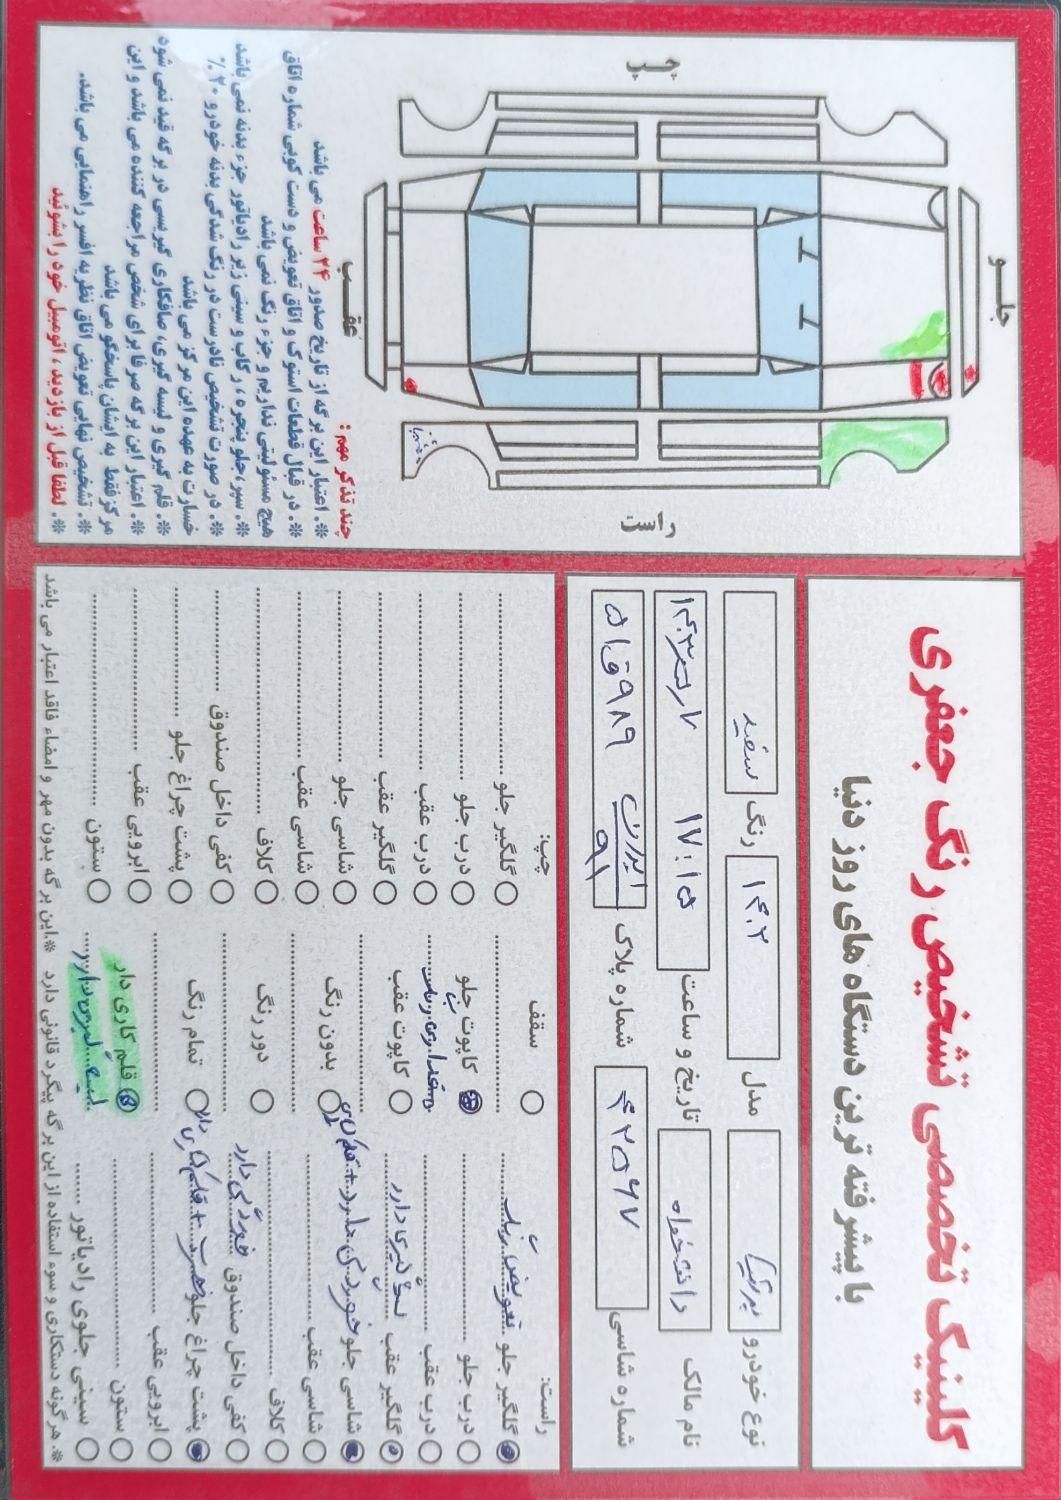 کلینیک تخصصی تشخیص رنگ جعفری
با پیشرفته ترین دستگاه های روز دنیا
نوع خودرو تیبا مدل ۱۴۰۲ رنگ سفید
نام مالک دادخواه تاریخ و ساعت ۱۷:۱۵
شماره شاسی ۴۲۵۶۷ شماره پلاک ۵۱ق۹۸۹ ایران ۹۱
راست:
گلگیر جلو تعویض رنگ
درب جلو
درب عقب
گلگیر عقب لیسه گیری دارد
شاسی جلو خوردگی دارد + قلم کاری
شاسی عقب
کلاف
کفی داخل صندوق خوردگی دارد
پشت چراغ جلو ضربه + قلم کاری دارد
ابرویی عقب
ستون
سینی جلوی رادیاتور
سقف
کاپوت جلو
کاپوت عقب
بدون رنگ
دور رنگ
تمام رنگ
قلم کاری دار
لیسه گیری دارد
چپ:
گلگیر جلو
درب جلو
درب عقب
گلگیر عقب
شاسی جلو
شاسی عقب
کلاف
کفی داخل صندوق
پشت چراغ جلو
ابرویی عقب
ستون
※. هر گونه دستکاری و سوء استفاده از این برگه پیگرد قانونی دارد ※.این برگه بدون مهر و امضاء فاقد اعتبار می باشد
جلـــو
چـپ
راست
عقـــب
چند تذکر مهم :
※. اعتبار این برگه از تاریخ صدور ۲۴ ساعت می باشد
※. در قبال قطعات استوک و اتاق تعویض و دست کوبی شماره اتاق
هیچ مسئولیتی نداریم و جزء رنگ نمی باشد
※. سپر،جلو پنجره، رکاب و سینی زیر رادیاتور جزء بدنه نمی باشد
※. در صورت تشخیص نادرست در رنگ شدگی بدنه خودرو ۲۰٪
خسارت به عهده این مرکز می باشد
※. قلم گیری و لیسه گیری، صافکاری گیریسی در برگه قید نمی شود
※. اعتبار این برگه صرفا برای شخص مراجعه کننده می باشد و این
مرکز فقط به ایشان پاسخگو می باشد
※. تشخیص نهایی تعویض اتاق نظریه افسر راهنمایی می باشد.
※. لطفا قبل از بازدید ، اتومبیل خود را بشوئید